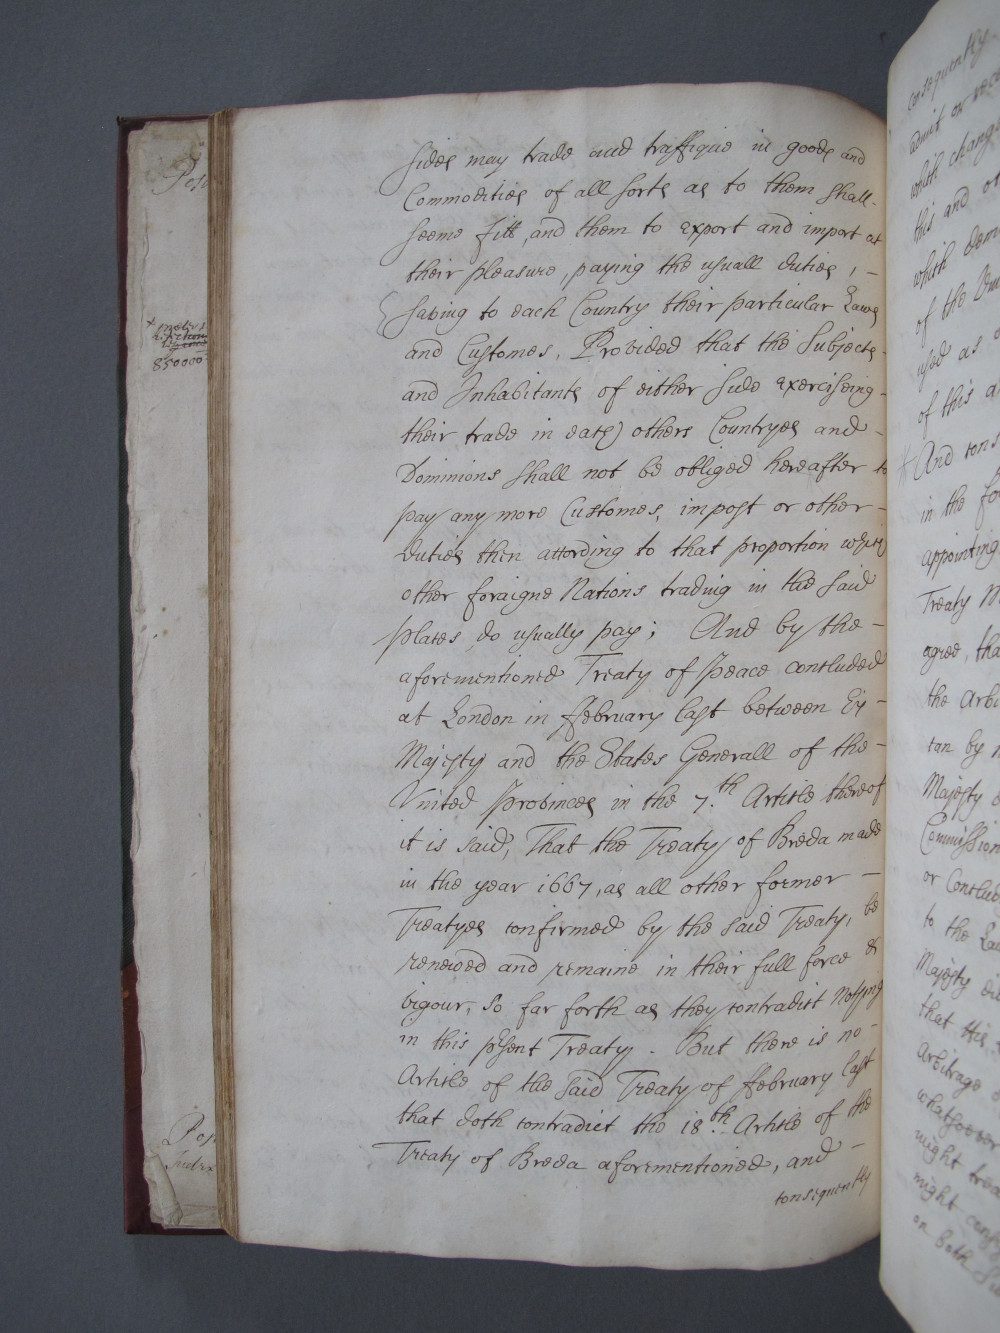 sides may trade and traffique in goods and
Commodities of all sorts as to them shall-
seeme fitt, and them to export and import at
their pleasure, paying the usuall duties, -
saving to each Country their particular Laws
and Customes, Provided that the Subjects-
and Inhabitants of either side exerciseing-
their trade in each others Countryes and-
Dominions shall not be obliged hereafter to
pay any more Customes, impost or other-
duties then according to that proportion which
other foraigne Nations trading in the said
places do usually pay; And by the-
aforementioned Treaty of Peace concluded
at London in ffebruary last between his-
Majesty and the States Generall of the-
United Provinces in the 7.th Article thereof
it is said, That the Treaty of Breda made
in the year 1667, as all other former-
Treatyes confirmed by the said Treaty, be
renewed and remaine in their full force &
vigour, so far forth as they contradict Nothing
in this psent Treaty. But there is no-
Article of the said Treaty of ffebruary last
that doth contradict the 18.th Article of the
Treaty of Breda aforementioned, and-
consequently
850000
consequently
admit or
which chang
this and
which
of the
used as
of this
And cons
in the
appointing
Treaty
agree, tha
the Arbi
can by
Majesty
Commission
or Conclud
to the
Majesty
that His
Arbitrage
whatsoever
might
might
on both